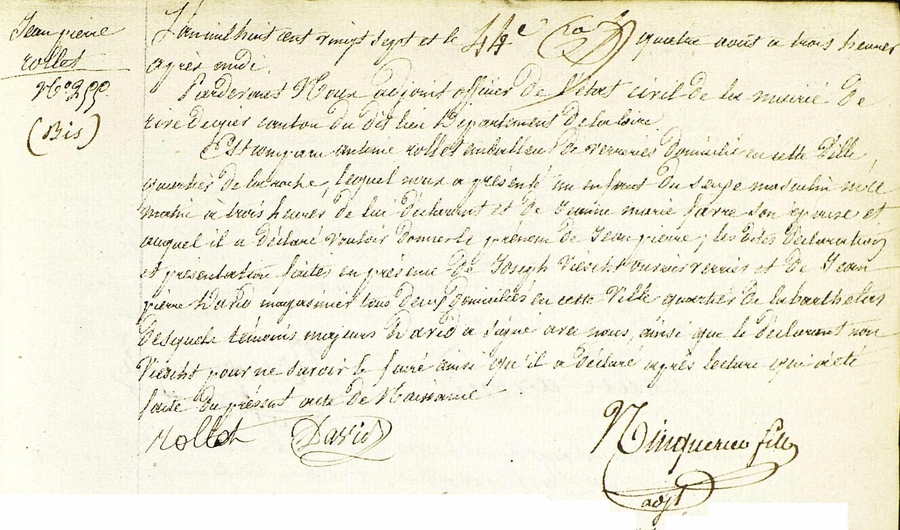 Jean pierre
rollet
N° 299
(Bis)
L'an mil huit cent vingt sept et le quatre août a trois heures
après midi.
Pardevant Nous adjoint officier de l'état civil de la mairie de
rive de gier canton du dit lieu Departement de la loire
Est comparu antoine rollet emballeur de verreries domicilié en cette Ville,
quartier de la roche, lequel nous a présenté un enfant du sexe masculin né ce
matin à trois heures de lui déclarant et de marie favre son épouse et
auquel il a déclaré vouloir donner le prénom de Jean pierre, les dites déclaration
et présentation faites en présence de Joseph Viescht ouvrier verrier et de Jean
pierre David magasinier tous deux domiciliés en cette Ville quartier de
desquels témoins majeurs David a signé avec nous, ainsi que le déclarant non
Viescht pour ne savoir le faire ainsi qu'il a déclaré après lecture qui a été
faite du présent acte de Naissance
rollet David
fils
adjt